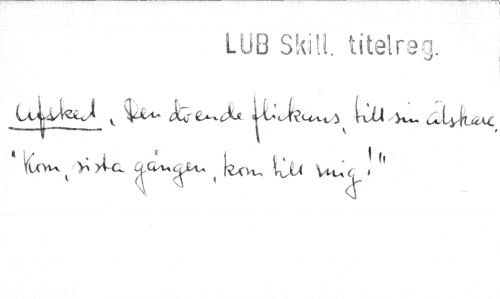 LUB Skill. titelreg.
Afsked, Den döende flickans, till sin älskare.
"Kom, sista gången, kom till mig!"